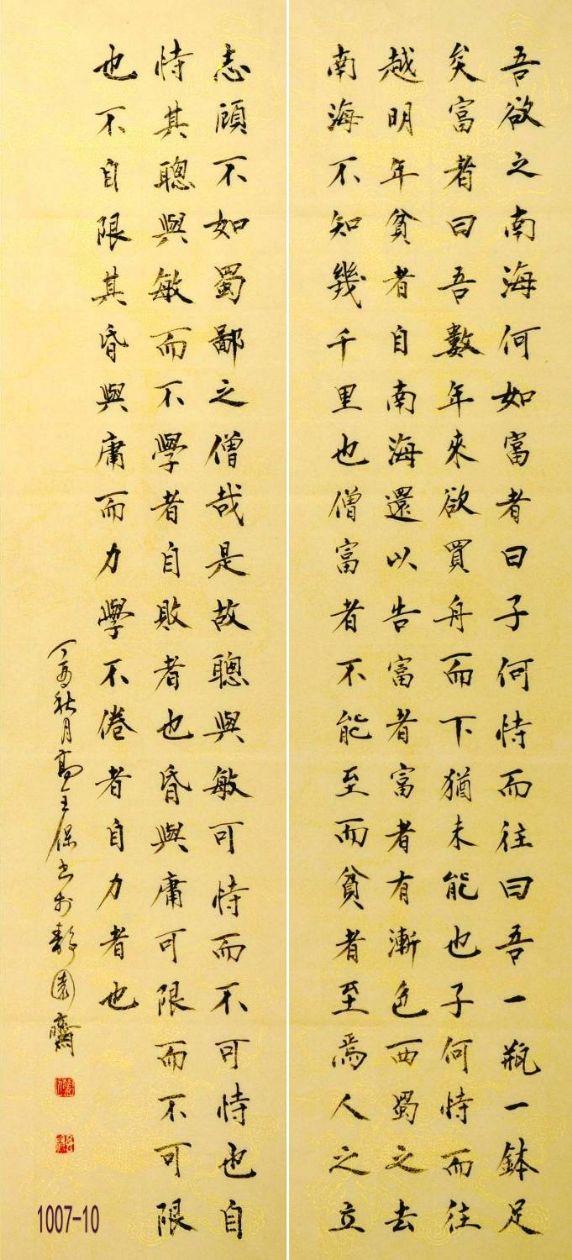 吾欲之南海何如富者曰子何恃而往曰吾一瓶一鉢足
矣富者曰吾數年來欲買舟而下猶未能也子何恃而往
越明年貧者自南海還以告富者富者有漸色西蜀之去
南海不知幾千里也僧富者不能至而貧者至焉人之立
志頋不如蜀鄙之僧哉是故聰與敏可恃而不可恃也自
恃其聰與敏而不學者自敗者也昏與庸可限而不可限
也不自限其昏與庸而力學不倦者自力者也
丁亥秋月高玉保书於静園齋
1007-10